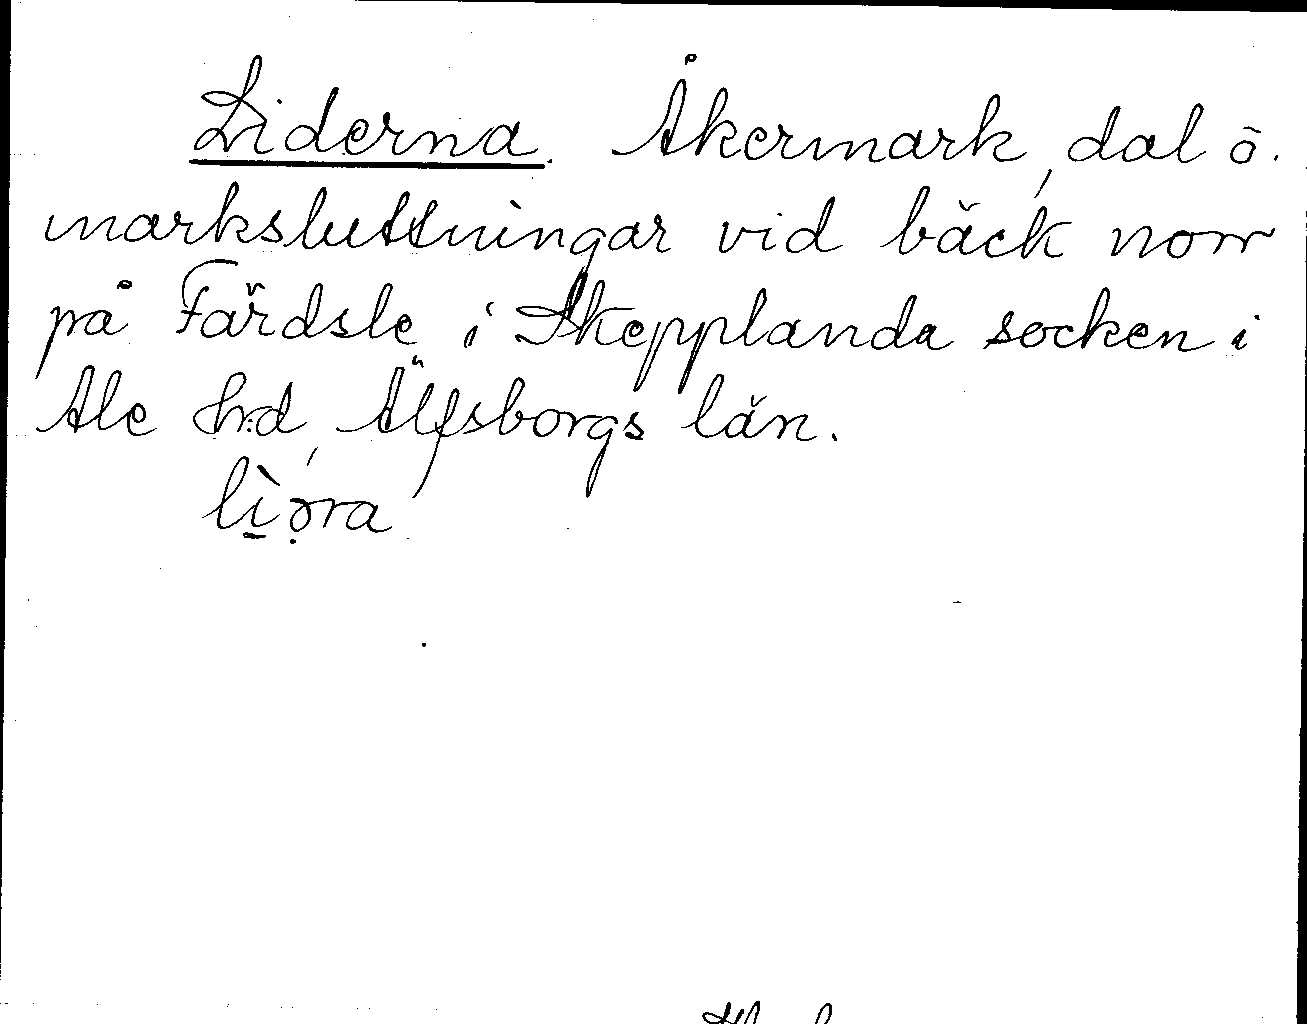 Liderna. Åkermark, dal ö.
marksluttningar vid bäck norr
på Färdsle i Skepplanda socken i
Ale h:d, Älfsborgs län.
lì̱ə̣ra